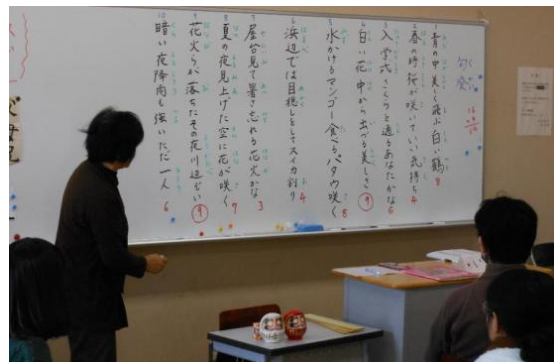 句会
一 青の中美しく飛ぶ白い鶴 8
二 春の時桜が咲いていい気持ち 4
三 入学式さくらと通るあなたかな 6
四 白い花中から出づる美しさ 9
五 水かけるマンゴー食べる 咲く 8
六 浜辺では目隠しをしてスイカ割り 4
七 屋台見て暑さ忘れる花火かな 3
八 夏の夜見上げた空に花が咲く 7
九 花火らが落ちたその夜川辺 9
十 暗い夜降雨も強いただ一人 6